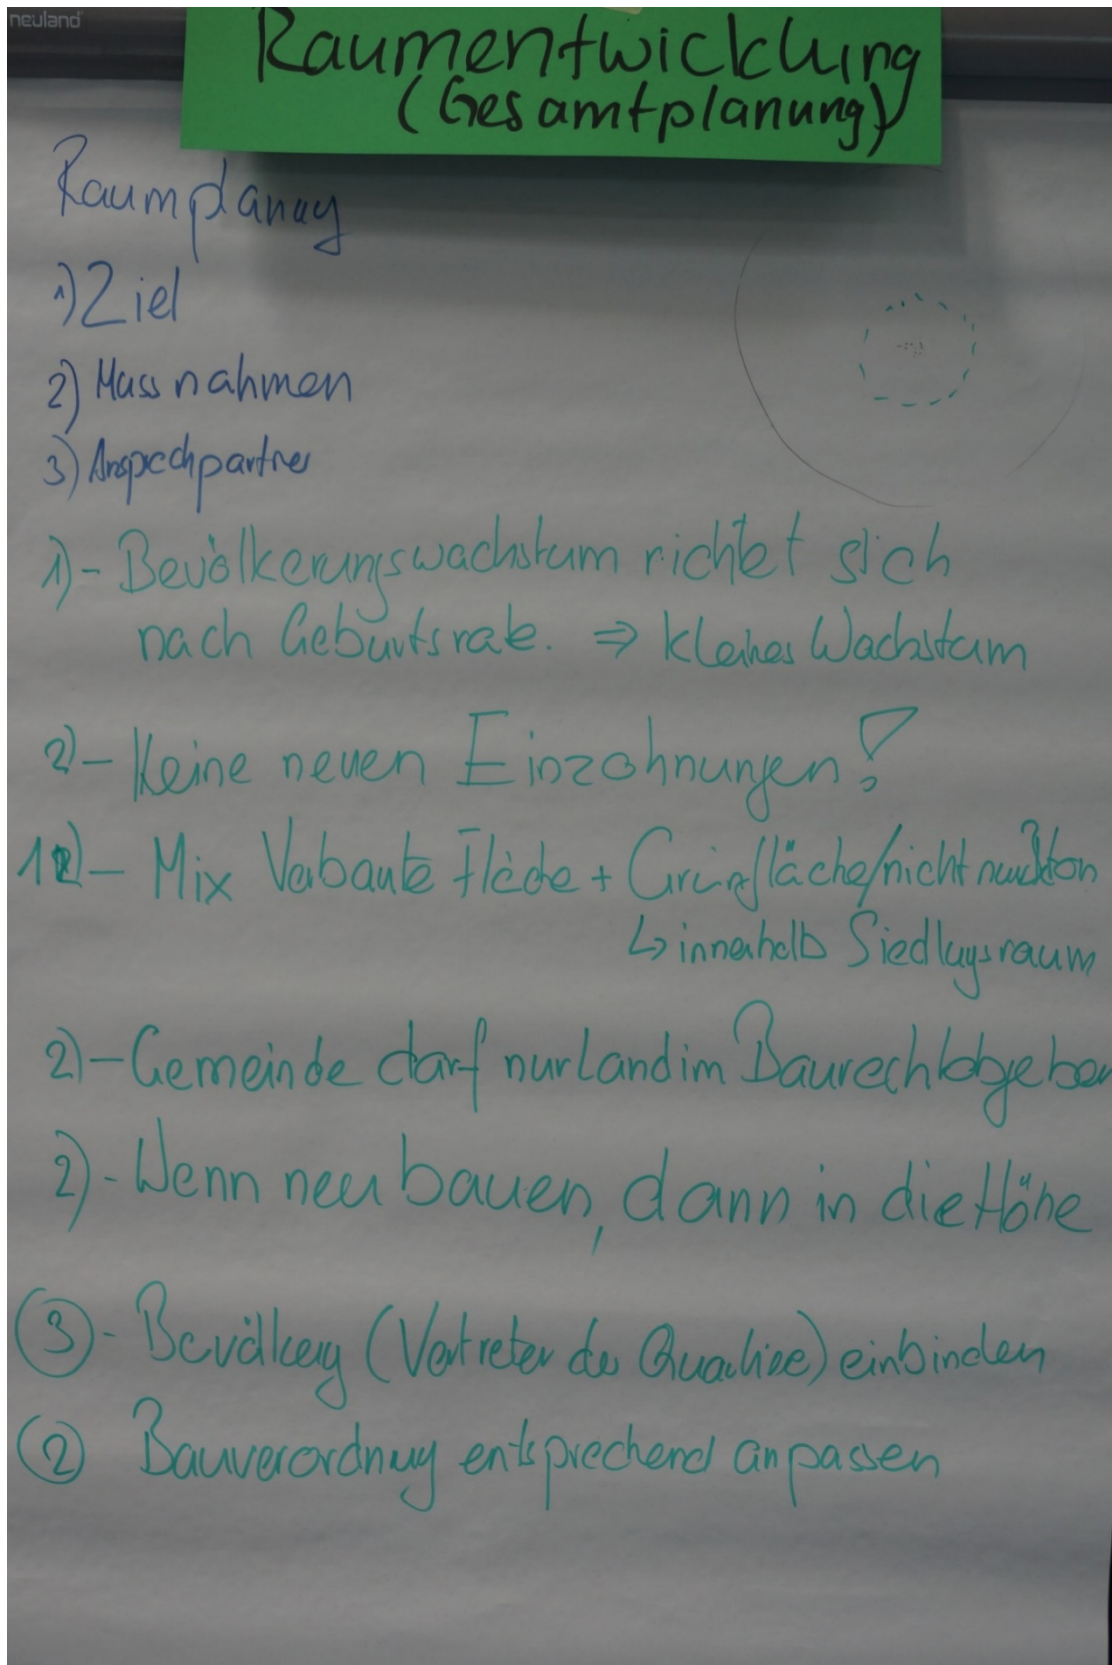 neuland
Raumentwicklung
(Gesamtplanung)
Raumplanung
1) Ziel
2) Massnahmen
3) Ansprechpartner
1) - Bevölkerungswachstum richtet sich
nach Geburtsrate. ⇒ kleines Wachstum
2) - Keine neuen Einzohnungen!
1) - Mix Verbaute Fläche + Grünfläche/nicht
↳ innerhalb Siedlungsraum
2) - Gemeinde darf nur Land im Baurecht abgeben
2) - Wenn neu bauen, dann in die Höhe
3 - Bevölkerung (Vertreter der Quartiere) einbinden
2 Bauverordnung entsprechend anpassen